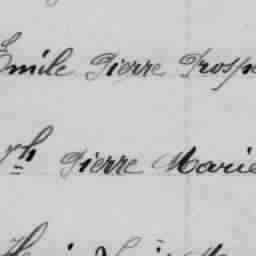 Emile Pierre Prospe
ph Pierre Marie